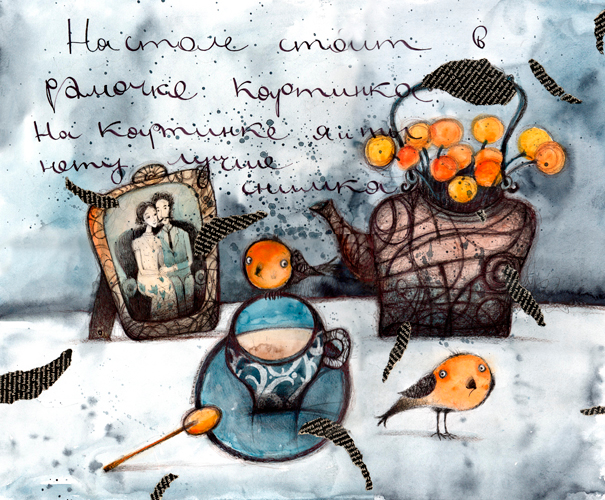 На столе стоит в
рамочке картинка
На картинке я и ты
нету лучше
снимка